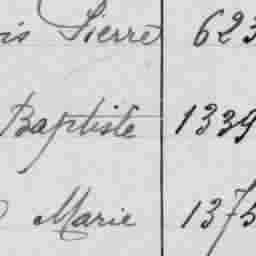 is Pierre 623
Baptiste 1339
Marie 1375